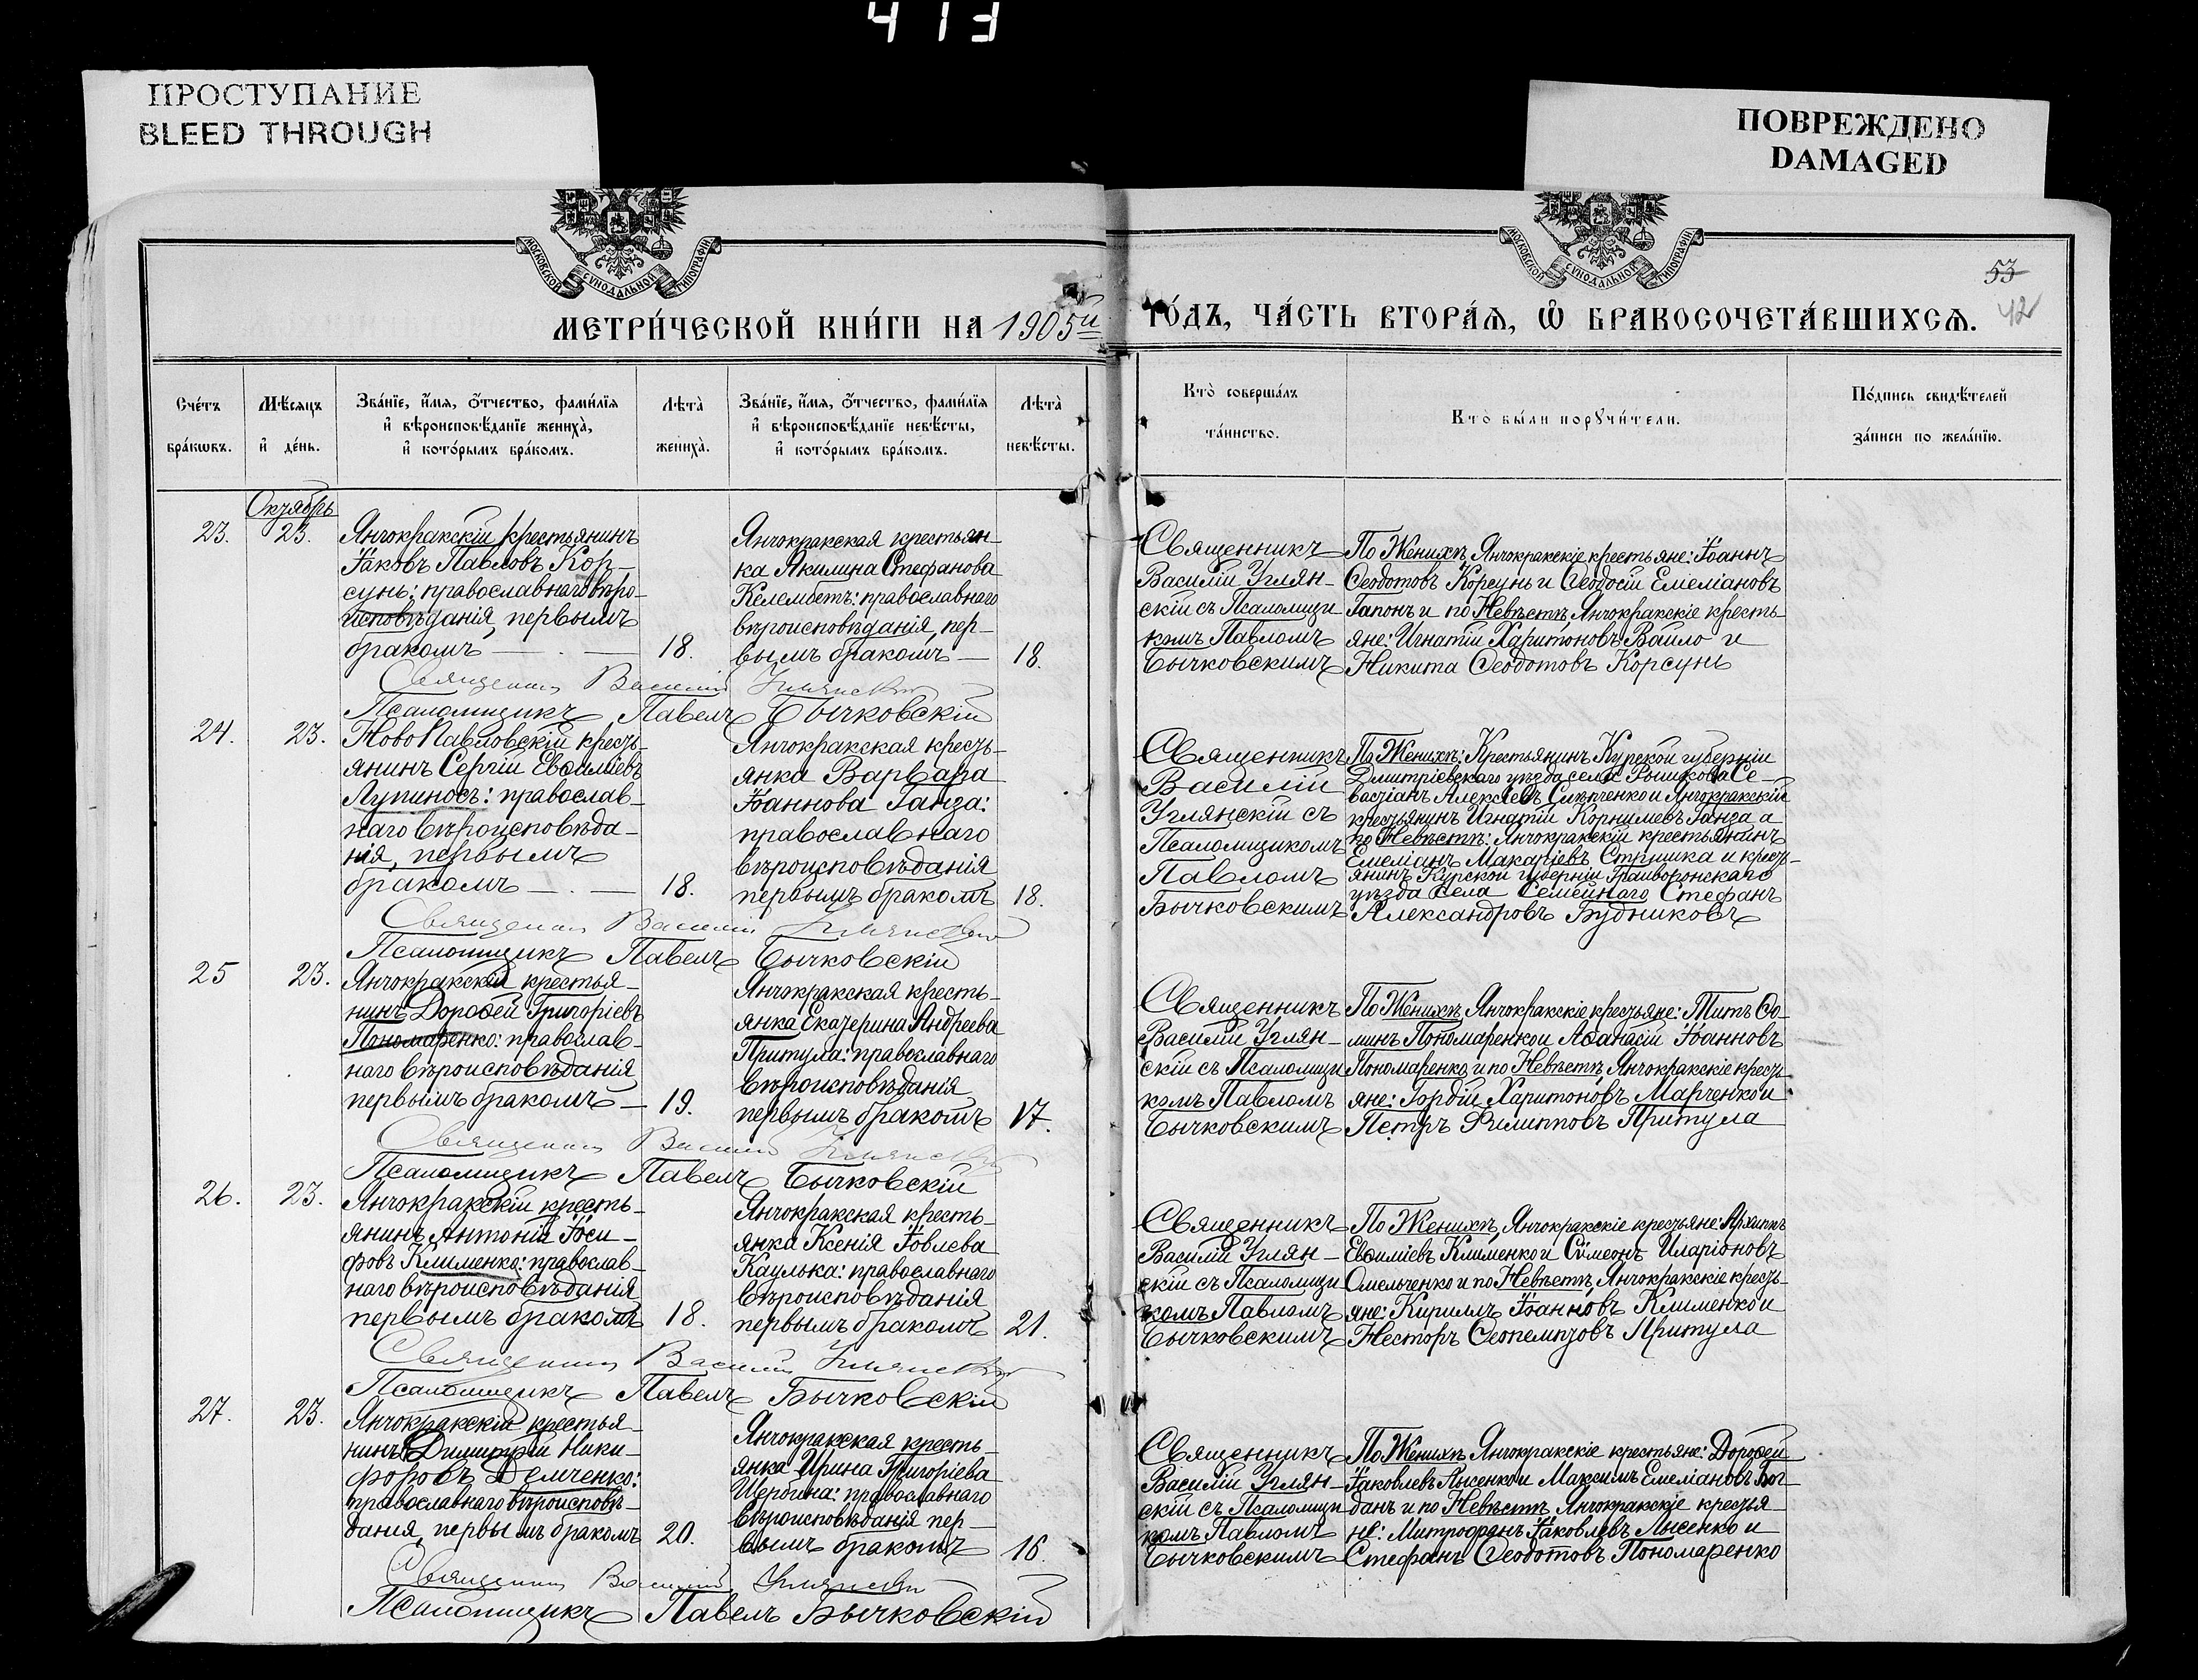 413
ПРОСТУПАНИЕ
BLEED THROUGH
ПОВРЕЖДЕНО
DAMAGED
МОСКОВСКОЙ СѴНОДАЛЬНОЙ ТИПОГРАФІИ
МОСКОВСКОЙ СѴНОДАЛЬНОЙ ТИПОГРАФІИ
53
42
МЕТРИ́ЧЕСКОЙ КНИ́ГИ НА 1905й
ГО́ДЪ, ЧА́СТЬ ВТОРА́Ѧ, Ѡ҆ БРАКОСОЧЕТА́ВШИХСѦ.
Сче́тъ
бра́кѡвъ.
Мѣ́сяцъ
и҆ де́нь.
Зва́нїе, и҆́мя, ѻ҆́тчество, фами́лїя
и҆ вѣроисповѣ́данїе жениха̀,
и҆ кото́рымъ бра́комъ.
Лѣта̀
жениха̀.
Зва́нїе, и҆́мя, ѻ҆́тчество, фами́лїя
и҆ вѣроисповѣ́данїе невѣ́сты,
и҆ кото́рымъ бра́комъ.
Лѣта̀
невѣ́сты.
Кто̀ соверша́лъ
та́инство.
Кто̀ бы́ли порꙋчи́тели.
По́дпись свидѣ́телей
за́писи по жела́нїю.
Октябрь
23.
23.
Янчокракскій крестьянинъ
Іаковъ Павловъ Кор-
сунь: православнаго вѣро-
исповѣданія, первымъ
бракомъ
18.
Янчокракская крестьян-
ка Акилина Стефанова
Келембетъ: православнаго
вѣроисповѣданія, пер-
вымъ бракомъ
18.
Священникъ
Василій Углян-
скій съ Псаломщи
комъ Павломъ
Бычковскимъ
По Женихѣ, Янчокракскіе крестьяне: Іоаннъ
Ѳеодотовъ Корсунь и Ѳеодосій Емеліановъ
Гапонъ и по Невѣстѣ, Янчокракскіе кресть-
яне: Игнатій Харитоновъ Вайло и
Никита Ѳеодотовъ Корсунь
Священникъ Василій Углянскій
Псаломщикъ Павелъ Бычковскій
24.
23.
НовоПавловскій кресть-
янинъ Сергій Евѳиміевъ
Лупиносъ: православ-
наго вѣроисповѣда-
нія, первымъ
бракомъ
18.
Янчокракская кресть-
янка Варвара
Іоаннова Ганза:
православнаго
вѣроисповѣданія
первымъ бракомъ
18.
Священникъ
Василій
Углянскій съ
Псаломщикомъ
Павломъ
Бычковскимъ
По Женихѣ: Крестьянинъ Курской губерніи
Дмитріевскаго уѣзда села Се-
вастіанъ Алексѣевъ и Янчокракскій
крестьянинъ Игнатій Корниліевъ Ганза а
по Невѣстѣ: Янчокракскій крестьянинъ
Емеліанъ Макаріевъ и кресть-
янинъ Курской губерніи Грайворонскаго
уѣзда села Стефанъ
Александровъ Будниковъ
Священникъ Василій Углянскій
Псаломщикъ Павелъ Бычковскій
25
23.
Янчокракскій крестья-
нинъ Дороѳей Григоріевъ
Пономаренко: православ-
наго вѣроисповѣданія
первымъ бракомъ
19.
Янчокракская кресть-
янка Екатерина Андреева
Притула: православнаго
вѣроисповѣданія
первымъ бракомъ
17.
Священникъ
Василій Углян-
скій съ Псаломщи
комъ Павломъ
Бычковскимъ
По Женихѣ, Янчокракскіе крестьяне: Титъ Ѳо-
минъ Пономаренко и Аѳанасій Іоанновъ
Пономаренко и по Невѣстѣ, Янчокракскіе кресть-
яне: Гордій Харитоновъ Марченко и
Петръ Филипповъ Притула
Священникъ Василій Углянскій
Псаломщикъ Павелъ Бычковскій
26.
23.
Янчокракскій кресть-
янинъ Антоній Іоси-
фовъ Клименко: православ-
наго вѣроисповѣданія
первымъ бракомъ
18.
Янчокракская кресть-
янка Ксенія Іовлева
Каулька: православнаго
вѣроисповѣданія
первымъ бракомъ
21.
Священникъ
Василій Углян-
скій съ Псаломщи
комъ Павломъ
Бычковскимъ
По Женихѣ, Янчокракскіе крестьяне: Архиппъ
Евѳиміевъ Клименко и Сѵмеонъ Иларіоновъ
Омельченко и по Невѣстѣ, Янчокракскіе кресть-
яне: Кириллъ Іоанновъ Клименко и
Несторъ Ѳеопемптовъ Притула
Священникъ Василій Углянскій
Псаломщикъ Павелъ Бычковскій
27.
23.
Янчокракскій крестья-
нинъ Димитрій Ники-
форовъ Демченко:
православнаго вѣроисповѣ-
данія, первымъ бракомъ
20.
Янчокракская кресть-
янка Ирина Григоріева
Щербина: православнаго
вѣроисповѣданія пер-
вымъ бракомъ
16.
Священникъ
Василій Углян-
скій съ Псаломщи
комъ Павломъ
Бычковскимъ
По Женихѣ Янчокракскіе крестьяне: Дороѳей
Іаковлевъ Лысенко и Максимъ Емеліановъ Бог-
данъ и по Невѣстѣ, Янчокракскіе крестья-
не: Митрофанъ Іаковлевъ Лысенко и
Стефанъ Ѳеодотовъ Пономаренко
Священникъ Василій Углянскій
Псаломщикъ Павелъ Бычковскій